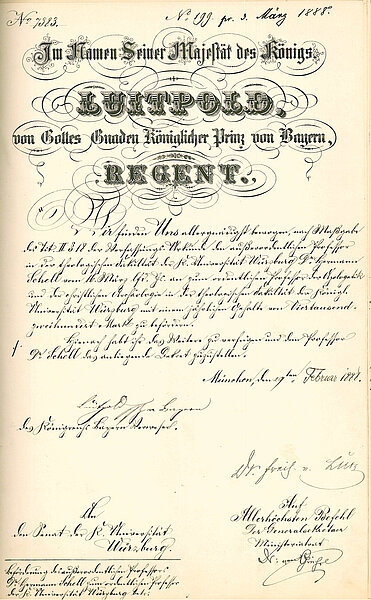 No. 7383.
No. 199 pr. 3. März 1888.
Im Namen Seiner Majestät des Königs.
LUITPOLD,
von Gottes Gnaden Königlicher Prinz von Bayern,
REGENT.
Wir finden Uns allergnädigst bewogen, nach Maßgabe
des Tit. II § 18 der Verfassungs-Urkunde den außerordentlichen Professor
in der theologischen Fakultät der K. Universität Würzburg Dr. Hermann
Schell vom 16. März lfd. Js. an zum ordentlichen Professor der Apologetik
und der christlichen Archäologie in der theologischen Fakultät der Königl.
Universität Würzburg mit einem jährlichen Gehalte von Viertausend
zweihundert Mark zu befördern.
Hienach habt ihr das Weitere zu verfügen und dem Professor
Dr. Schell das anliegende Dekret zuzustellen.
München, den 29ten Februar 1888.
Luitpold Prinz von Bayern
des Königreichs Bayern Verweser.
Dr. Freih. v. Lutz
An
den Senat der K. Universität
Würzburg.
Auf
Allerhöchsten Befehl
Der Generalsekretär
Ministerialrat
Beförderung des außerordentlichen Professors
Dr. Hermann Schell zum ordentlichen Professor
der K. Universität Würzburg betr.